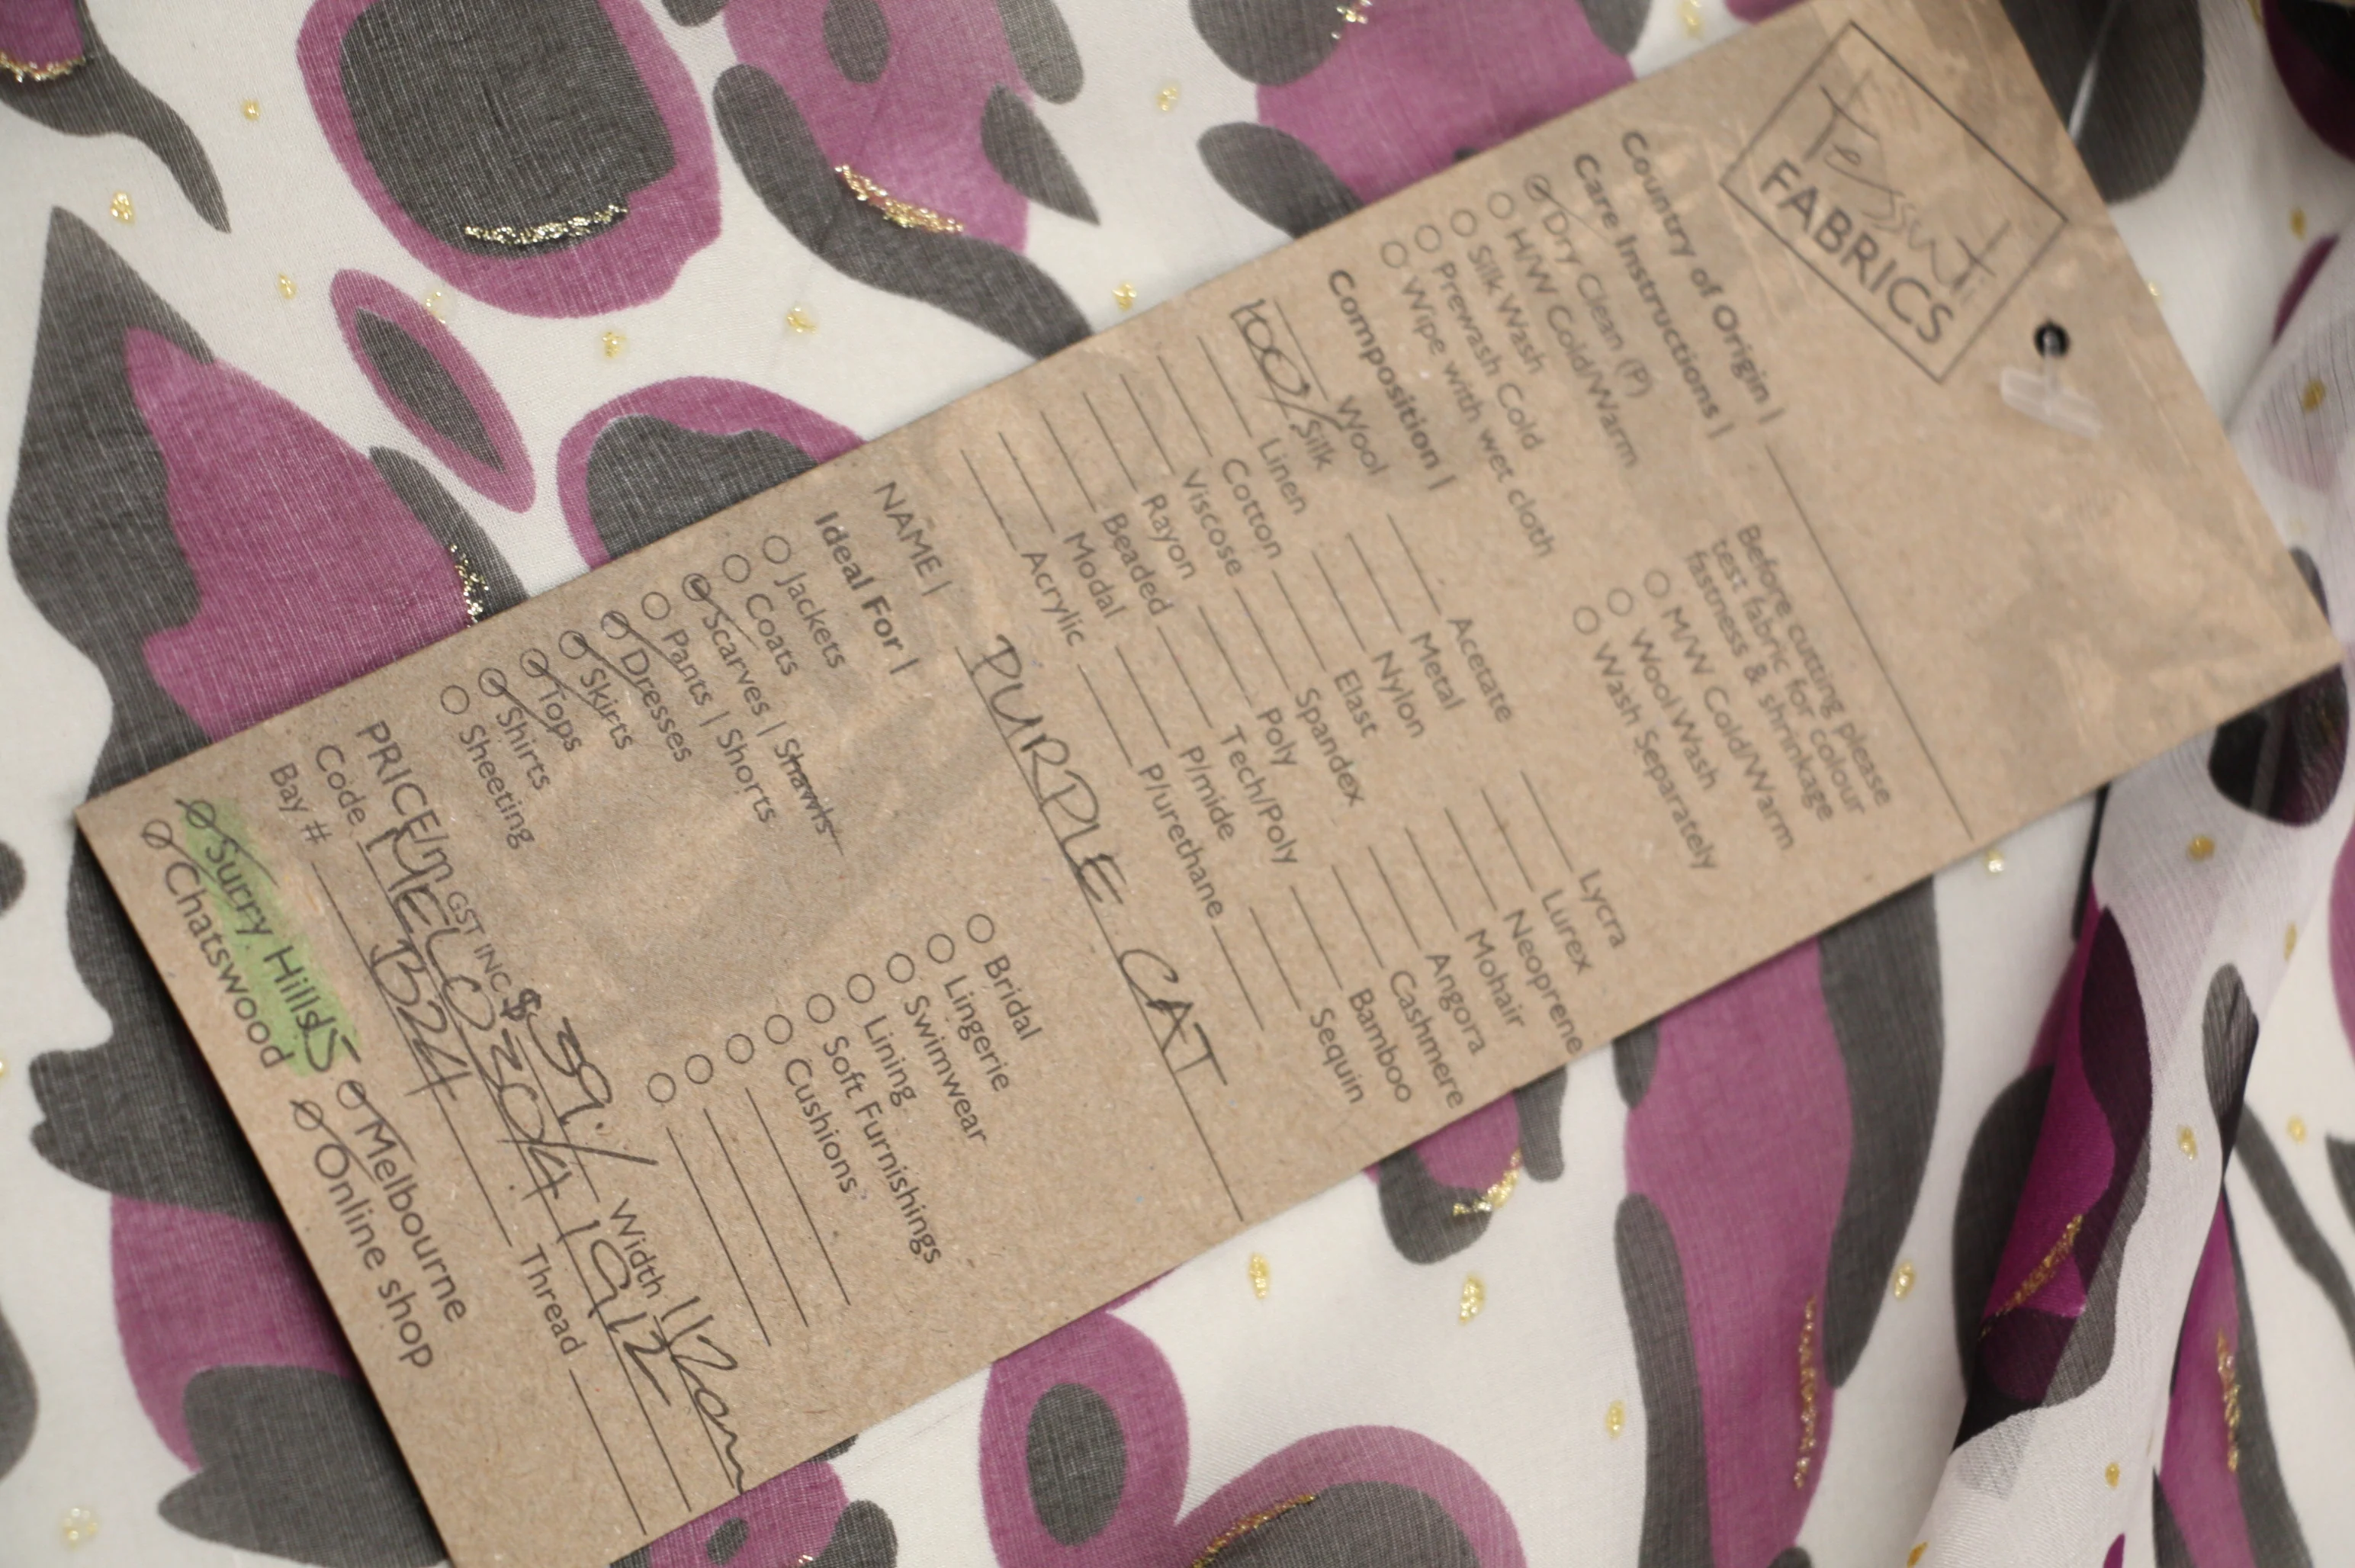 Tessuti
FABRICS
Country of Origin |
Care Instructions |
Before cutting please
test fabric for colour
fastness & shrinkage
Dry Clean (P)
H/W Cold/Warm
Silk Wash
Prewash Cold
Wipe with wet cloth
M/W Cold/Warm
Wool Wash
Wash Separately
Composition |
Wool
100% Silk
Linen
Cotton
Viscose
Rayon
Beaded
Modal
Acrylic
Acetate
Metal
Nylon
Elast
Spandex
Poly
Tech/Poly
P/mide
P/urethane
Lycra
Lurex
Neoprene
Mohair
Angora
Cashmere
Bamboo
Sequin
NAME | PURPLE CAT
Ideal For |
Jackets
Coats
Scarves | Shawls
Pants | Shorts
Dresses
Skirts
Tops
Shirts
Sheeting
Bridal
Lingerie
Swimwear
Lining
Soft Furnishings
Cushions
PRICE/m GST INC $ 39.- Width
Code
Bay # B24 Thread
Surry Hills Melbourne
Chatswood Online shop